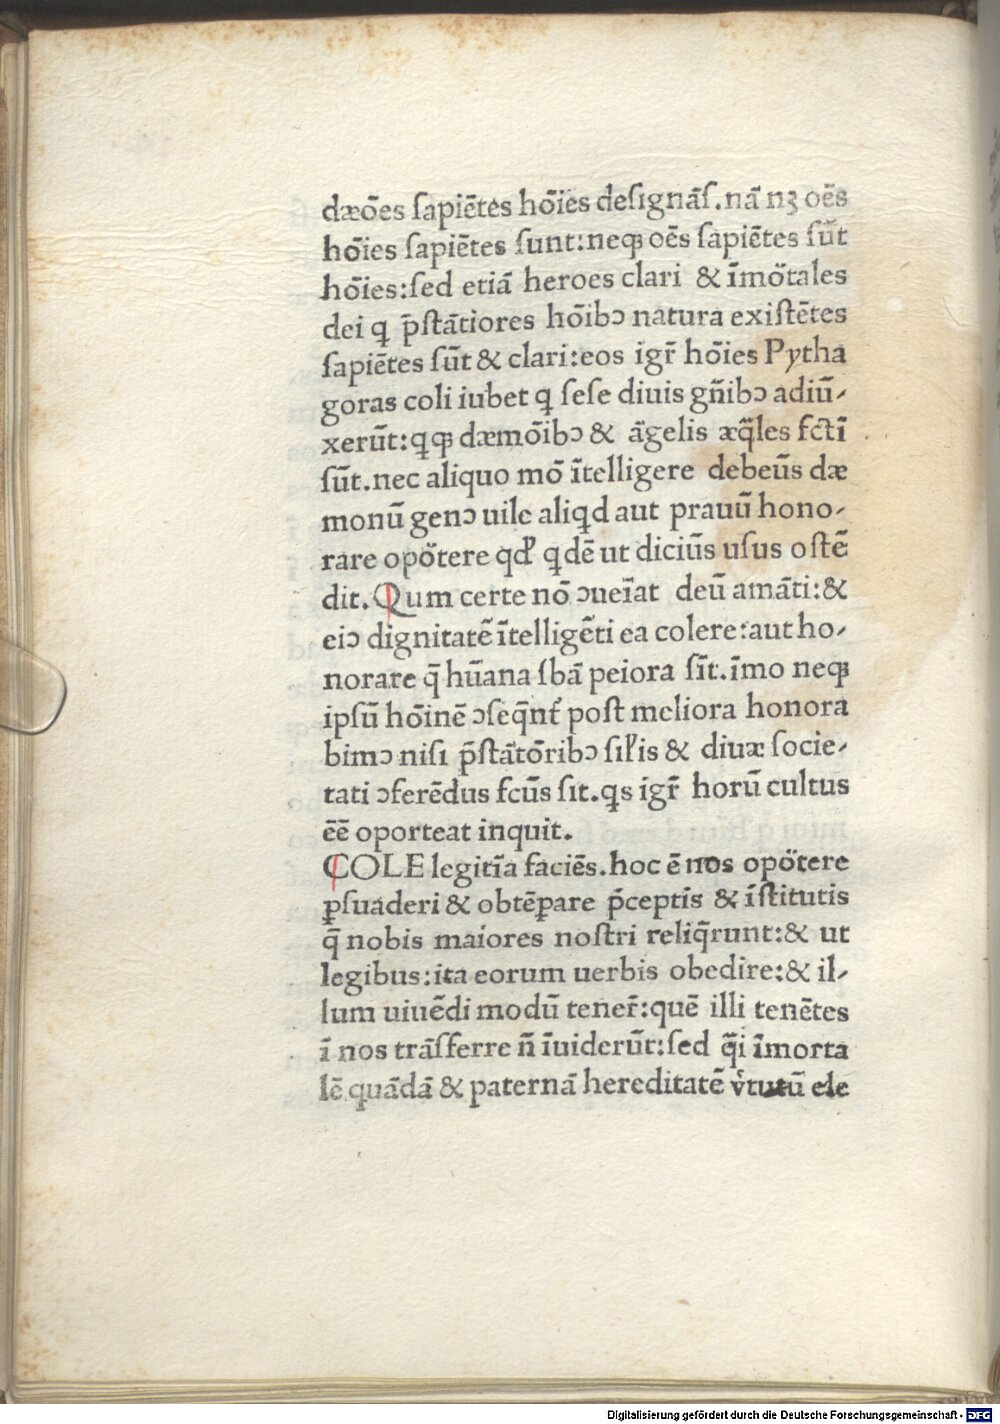 dæōes ſapiētes hōies deſignāſ.nā nꝫ oēs
hōies ſapiētes ſunt:neqꝫ oēs ſapiētes ſūt
hōies:ſed etiā heroes clari & īmo᷑tales
dei q p̄ſtātiores hōibꝰ natura exiſtētes
ſapiētes ſūt & clari:eos igr̄ hōies Pytha
goras coli iubet q ſeſe diuis gn̄ibꝰ adiū⸗
xerūt:qqꝫ dæmōibꝰ & āgelis æq̄les fctī
ſūt.nec aliquo mō ītelligere debeūs dæ
monū genꝰ uile aliqd aut prauū hono⸗
rare opo᷑tere qđ qdē ut diciūs uſus oſtē
dit.Qum certe nō ꝯueīat deū amāti:&
eiꝰ dignitatē ītelligēti ea colere:aut ho⸗
norare q̄ hūana ſbā peiora ſīt.īmo neqꝫ
ipſū hōinē ꝯſeq̄nt᷑ poſt meliora honora
bimꝰ niſi p̄ſtātōribꝰ ſiľis & diuæ ſocie⸗
tati ꝯferēdus fcūs ſit.qs igr̄ horū cultus
ēē oporteat inquit.
COLE legitīa faciēs.hoc ē nos opo᷑tere
ꝑſuaderi & obtēꝑare p̄ceptīs & īſtitutis
q̄ nobis maiores noſtri reliq̄runt:& ut
legibus:ita eorum uerbis obedire:& il⸗
lum uiuēdi modū tener̄:quē illi tenētes
ī nos trāſferre n̄ īuiderūt:ſed q̄i īmorta
lē quādā & paternā hereditatē v̓tutū ele
Digitalisierung gefördert durch die Deutsche Forschungsgemeinschaft - DFG